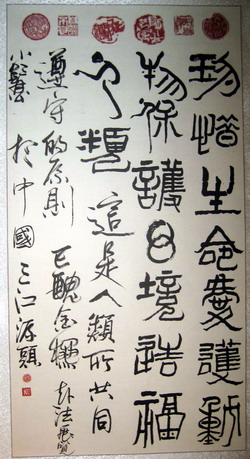 珍惜生命愛護動
物保護境造福
類這是人類所共同
遵守的原則己醜金犢赴法展覽
小於中國三江源頭